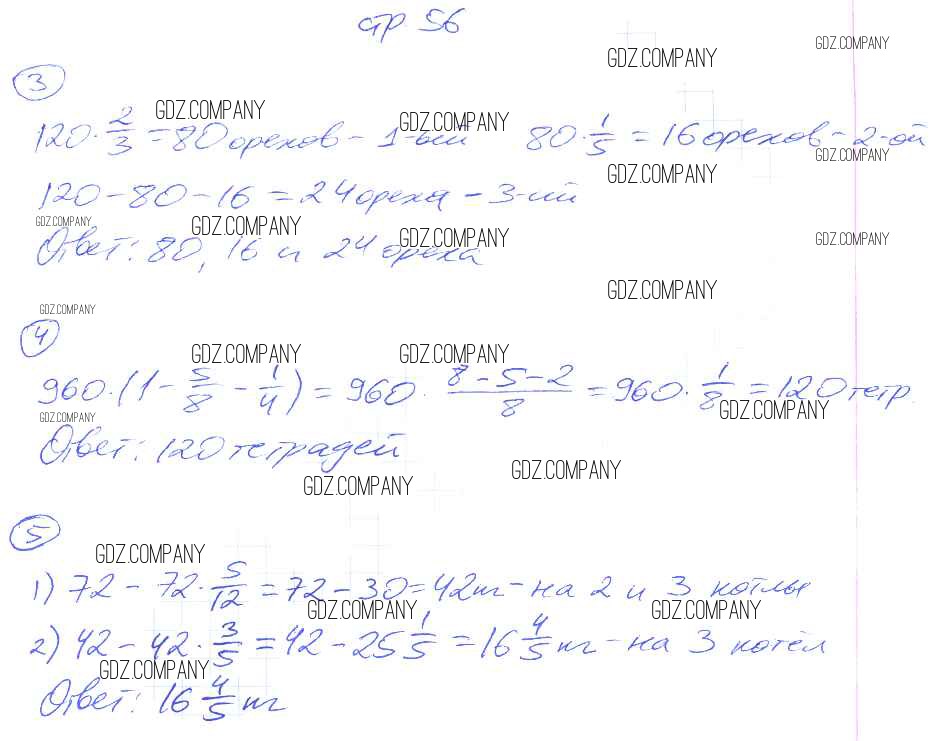 стр 56
GDZ.COMPANY
GDZ.COMPANY
3
GDZ.COMPANY
GDZ.COMPANY
120 · 2/3 = 80 орехов - 1-ый 80 · 1/5 = 16 орехов - 2-ой
GDZ.COMPANY
GDZ.COMPANY
120 - 80 - 16 = 24 ореха - 3-ий
GDZ.COMPANY
GDZ.COMPANY
GDZ.COMPANY
GDZ.COMPANY
Ответ: 80, 16 и 24 ореха
GDZ.COMPANY
GDZ.COMPANY
4
GDZ.COMPANY
GDZ.COMPANY
960 · (1 - 5/8 - 1/4) = 960 · (8-5-2)/8 = 960 · 1/8 = 120 тетр.
GDZ.COMPANY
GDZ.COMPANY
Ответ: 120 тетрадей
GDZ.COMPANY
GDZ.COMPANY
5
GDZ.COMPANY
1) 72 - 72 · 5/12 = 72 - 30 = 42 кг - на 2 и 3 котлы
GDZ.COMPANY
GDZ.COMPANY
2) 42 - 42 · 3/5 = 42 - 25 1/5 = 16 4/5 кг - на 3 котёл
GDZ.COMPANY
Ответ: 16 4/5 кг